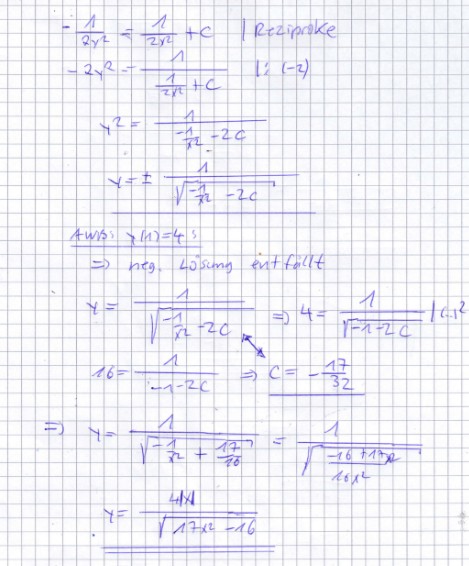 - 1/(2y²) = 1/(2x²) + C | Reziproke
- 2y² = 1/(1/(2x²) + C) | : (-2)
y² = 1/(-1/x² - 2C)
y = ± 1/√(-1/x² - 2C)
AWB: y(1)=4 :
=> neg. Lösung entfällt
y = 1/√(-1/x² - 2C) => 4 = 1/√(-1-2C) | (..)²
16 = 1/(-1-2C) => C = - 17/32
=> y = 1/√(-1/x² + 17/16) = 1/√((-16 + 17x²)/(16x²))
y = 4|x|/√(17x² - 16)